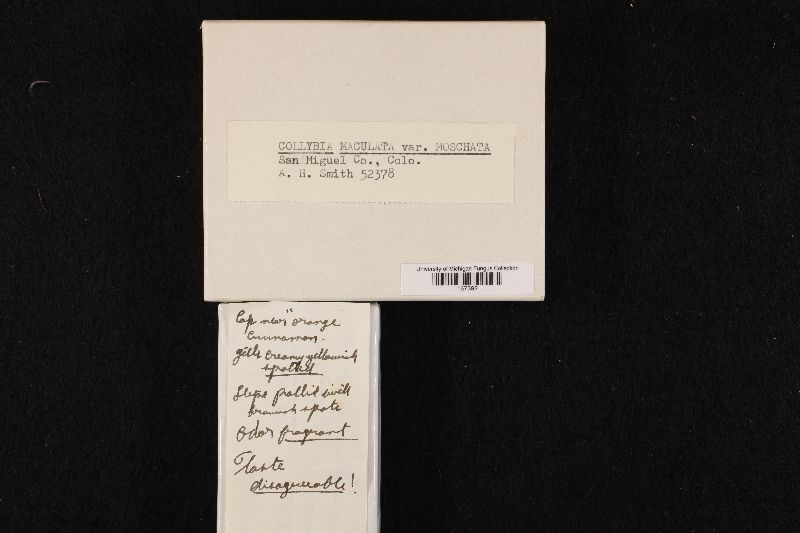 COLLYBIA MACULATA var. MOSCHATA
San Miguel Co., Colo.
A. H. Smith 52378
University of Michigan Fungus Collection
Cap near "orange
Cinnamon.
gills creamy yellowish
spotted
Stipe pallid with
brownish spots
Odor fragrant
Taste
disagreeable!